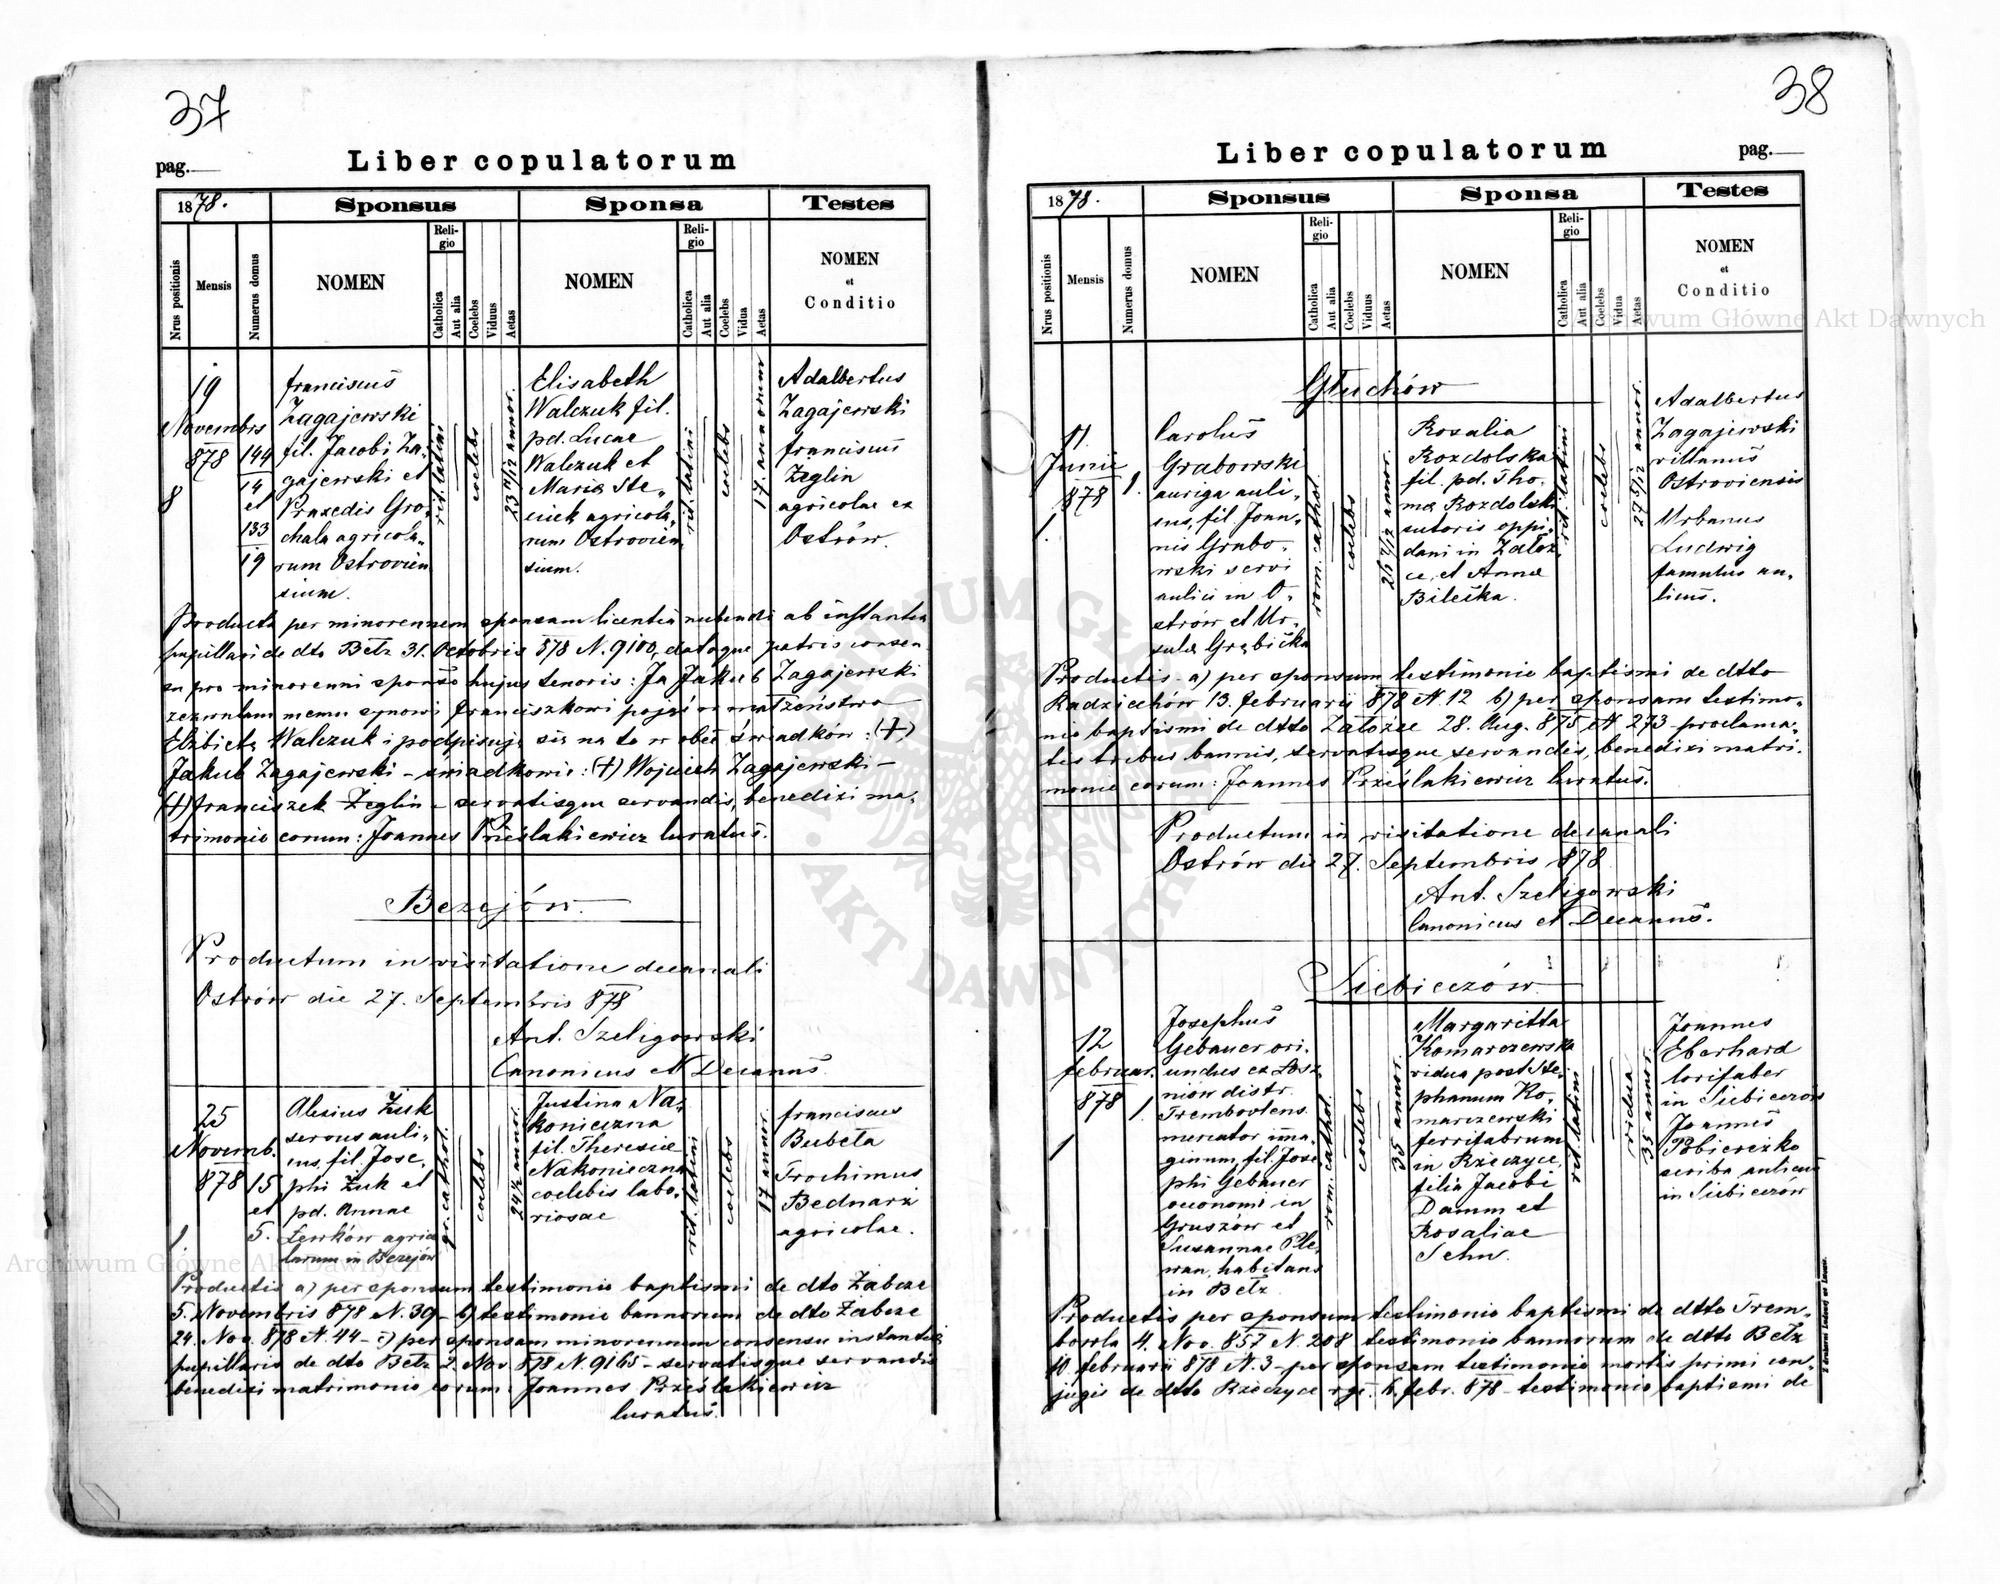 37
Liber copulatorum
pag.
1878.
Sponsus
Sponsa
Testes
Nrus positionis
Mensis
Numerus domus
NOMEN
Religio
Catholica
Aut alia
Coelebs
Viduus
Aetas
NOMEN
Religio
Catholica
Aut alia
Coelebs
Vidua
Aetas
NOMEN
et
Conditio
19
Novembrs
878
8
144
14
et
133
19
franciscus
Zagajewski
fil. Jacobi Za-
gajewski et
Praxedis Gro-
chala agricola-
rum Ostrovien
sium.
rit. latini
coelebs
23 11/12 annor.
Elisabeth
Walczuk fil.
pd. Lucae
Walczuk et
Mariæ Ste-
ciuk agricola-
rum Ostrovien
sium.
rit. latini
coelebs
17. annorum
Adalbertus
Zagajewski
franciscus
Żeglin
agricolae ex
Ostrów.
Producta per minorennem sponsam licentia nubendi ab instantia
pupillari de dto Bełz 31. Octobris 878 N. 9100, datoque patris consen
su pro minorenni sponso hujus tenoris: Ja Jakub Zagajewski
zezwalam memu synowi franciszkowi pojąć w małżeństwo
Elżbietę Walczuk i podpisuję się na to w obec świadków: (+)
Jakub Zagajewski – świadkowie: (+) Wojciech Zagajewski –
(+) franciszek Żeglin – servatisque servandis, benedixi ma-
trimonio eorum: Joannes Prześlakiewicz Curatus.
Bezejów.
Productum in visitatione decanali
Ostrów die 27. Septembris 878
Ant. Szeligowski
Canonicus et Decanus
25
Novemb.
878
1.
15
et
5.
Alexius Żuk
servus auli-
cus, fil. Jose-
phi Żuk et
pd. Annae
Lewków agrico
larum in Bezejów
gr. cathol.
coelebs
24½ annor.
Justina Na-
konieczna
fil. Theresiæ
Nakonieczna
coelebis labo-
riosae
rit. latini
coelebs
17 annor.
franciscus
Bubeła
Trochimus
Bednarz
agricolae.
Productis a) per sponsum testimonio baptismi de dto Żabcze
5. Novembris 878 N. 39 – b) testimonio bannorum de dto Żabcze
24. Nov. 878 N. 44 – c) per sponsam minorennem consensu instantiæ
pupillaris de dto Bełz 2. Nov. 878 N. 9165 – servatisque servandis
benedixi matrimonio eorum: Joannes Prześlakiewicz
Curatus.
38
Liber copulatorum
pag.
1878.
Sponsus
Sponsa
Testes
Nrus positionis
Mensis
Numerus domus
NOMEN
Religio
Catholica
Aut alia
Coelebs
Viduus
Aetas
NOMEN
Religio
Catholica
Aut alia
Coelebs
Vidua
Aetas
NOMEN
et
Conditio
Głuchów
11.
Junii
878
1.
1.
Carolus
Grabowski
auriga auli-
cus, fil. Joan-
nis Grabo-
wski servi
aulici in O-
strów et Ur-
sulæ Grębička
rom. cathol.
coelebs
Rosalia
Rozdolska
fil. pd. Tho-
mæ Rozdolski
sutoris oppi-
dani in Załoz
ce, et Annæ
Bilečka.
rit. latini
coelebs
27 5/12 annor.
Adalbertus
Zagajewski
villanus
Ostroviensis
Urbanus
Ludwig
famulus au-
licus.
Productis a) per sponsum testimonio baptismi de dtto
Radziechów 13. februarii 878 N. 12 b) per sponsam testimo-
nio baptismi de dtto Założce 28. Aug. 875 N. 273 – proclama-
tis tribus bannis, servatisque servandis, benedixi matri-
monio eorum: Joannes Prześlakiewicz Curatus.
Productum in visitatione decanali
Ostrów die 27. Septembris 878
Ant. Szeligowski
Canonicus et Decanus.
Siebieczów
12
februar.
878
1
1.
Josephus
Gebauer ori-
undus ex Losz
niów distr.
Trembovlens.
mercator ima-
ginum, fil. Jose
phi Gebauer
oeconomi in
Gruszów et
Susannae Ple-
wan, habitans
in Bełz.
rom. cathol.
coelebs
35 annor.
Margaritta
Komarczewska
vidua post Ste-
phanum Ko-
marczewski
ferrifabrum
in Rzeczyce,
filia Jacobi
Damm et
Rosaliae
Sehn.
rit. latini
vidua
35 annor.
Joannes
Eberhard
lorifaber
in Siebieczów
Joannes
Pobiereżko
scriba aulicus
in Siebieczów
Productis per sponsum testimonio baptismi de dtto Trem-
bovla 4. Nov. 857 N. 208 testimonio bannorum de dtto Bełz
10. februarii 878 N. 3 – per sponsam testimonio mortis primi con-
jugis de dtto Rzeczyce rgc. 6. febr. 878 – testimonio baptismi de
Archiwum Główne Akt Dawnych
Archiwum Główne Akt Dawnych